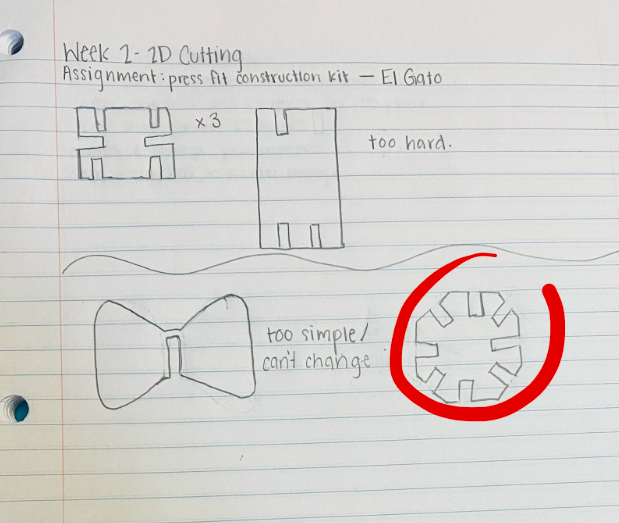 Week 2 - 2D Cutting
Assignment: press fit construction kit — El Gato
x3
too hard.
too simple/
can't change